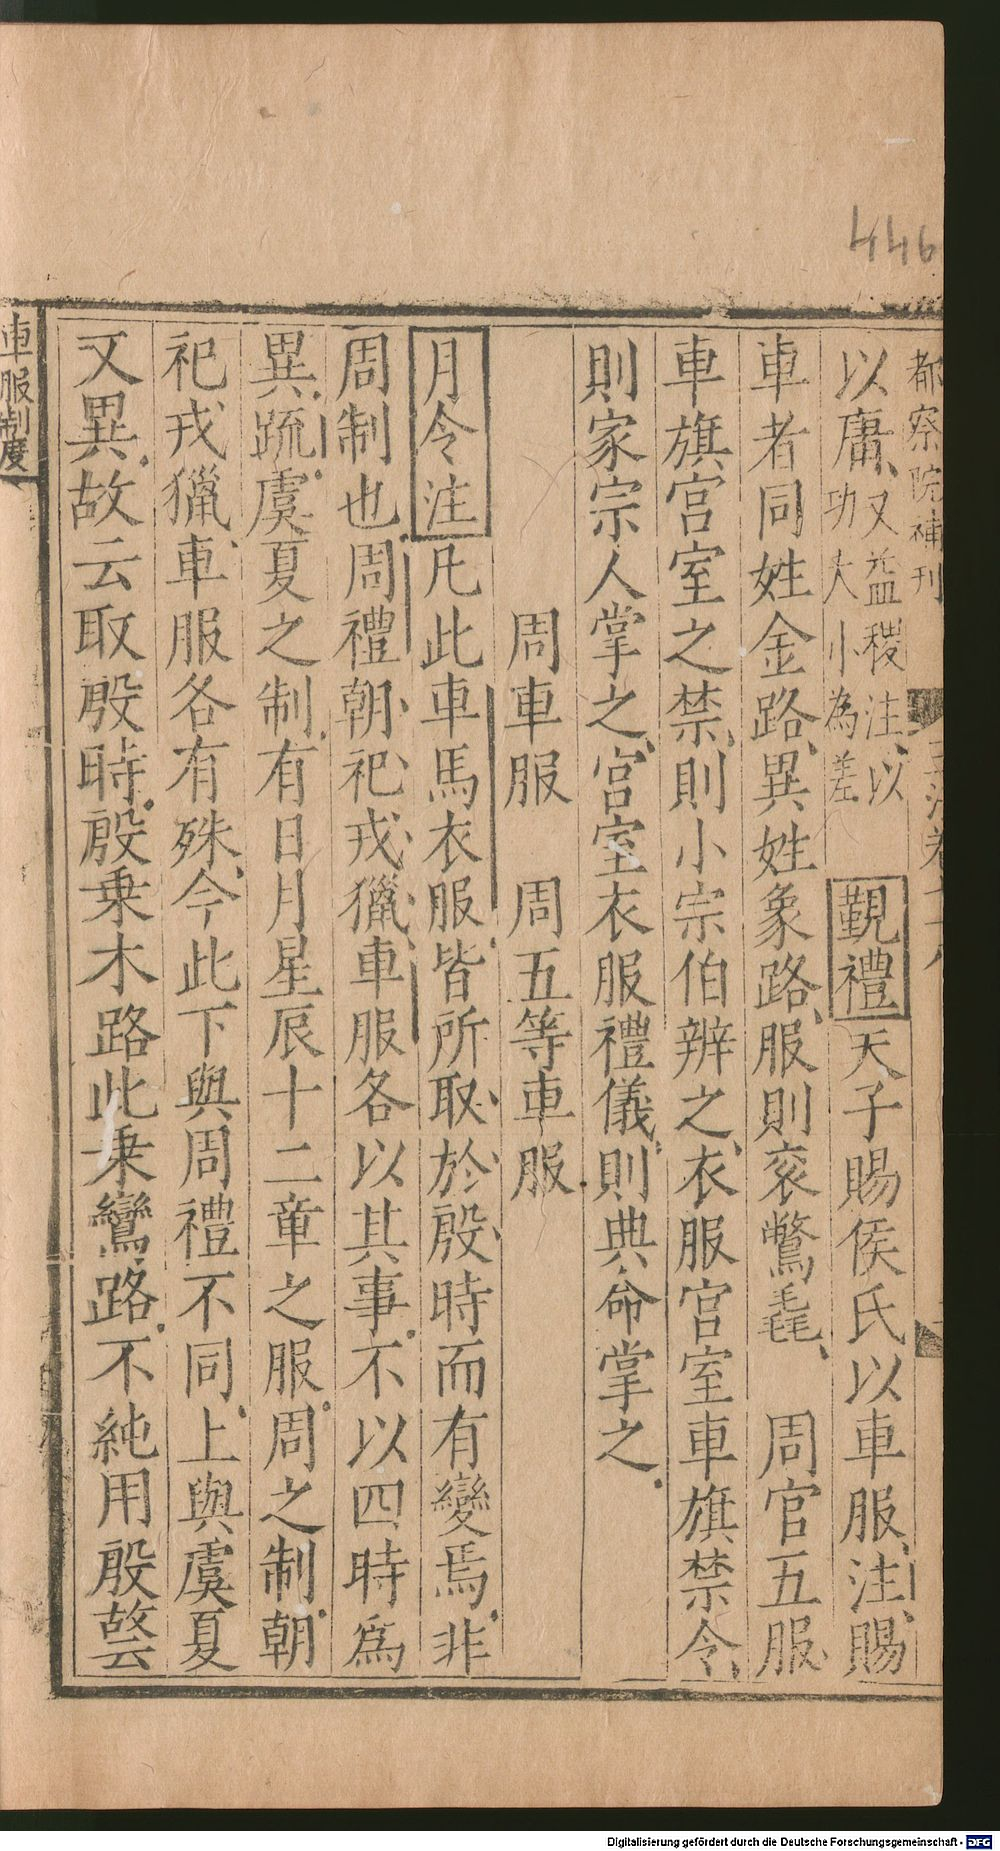 446
都察院補刊
以庸又益稷注以功大小為差 覲禮天子賜侯氏以車服注賜
車者同姓金路異姓象路服則衮鷩毳 周官五服
車旗宮室之禁則小宗伯辨之衣服宮室車旗禁令
則家宗人掌之宮室衣服禮儀則典命掌之
周車服 周五等車服
月令注凡此車馬衣服皆所取於殷時而有變焉非
周制也周禮朝祀戎獵車服各以其事不以四時爲
異疏虞夏之制有日月星辰十二章之服周之制朝
祀戎獵車服各有殊今此下與周禮不同上與虞夏
又異故云取殷時殷乗木路此乗鸞路不純用殷故云
車服制度
Digitalisierung gefördert durch die Deutsche Forschungsgemeinschaft - DFG